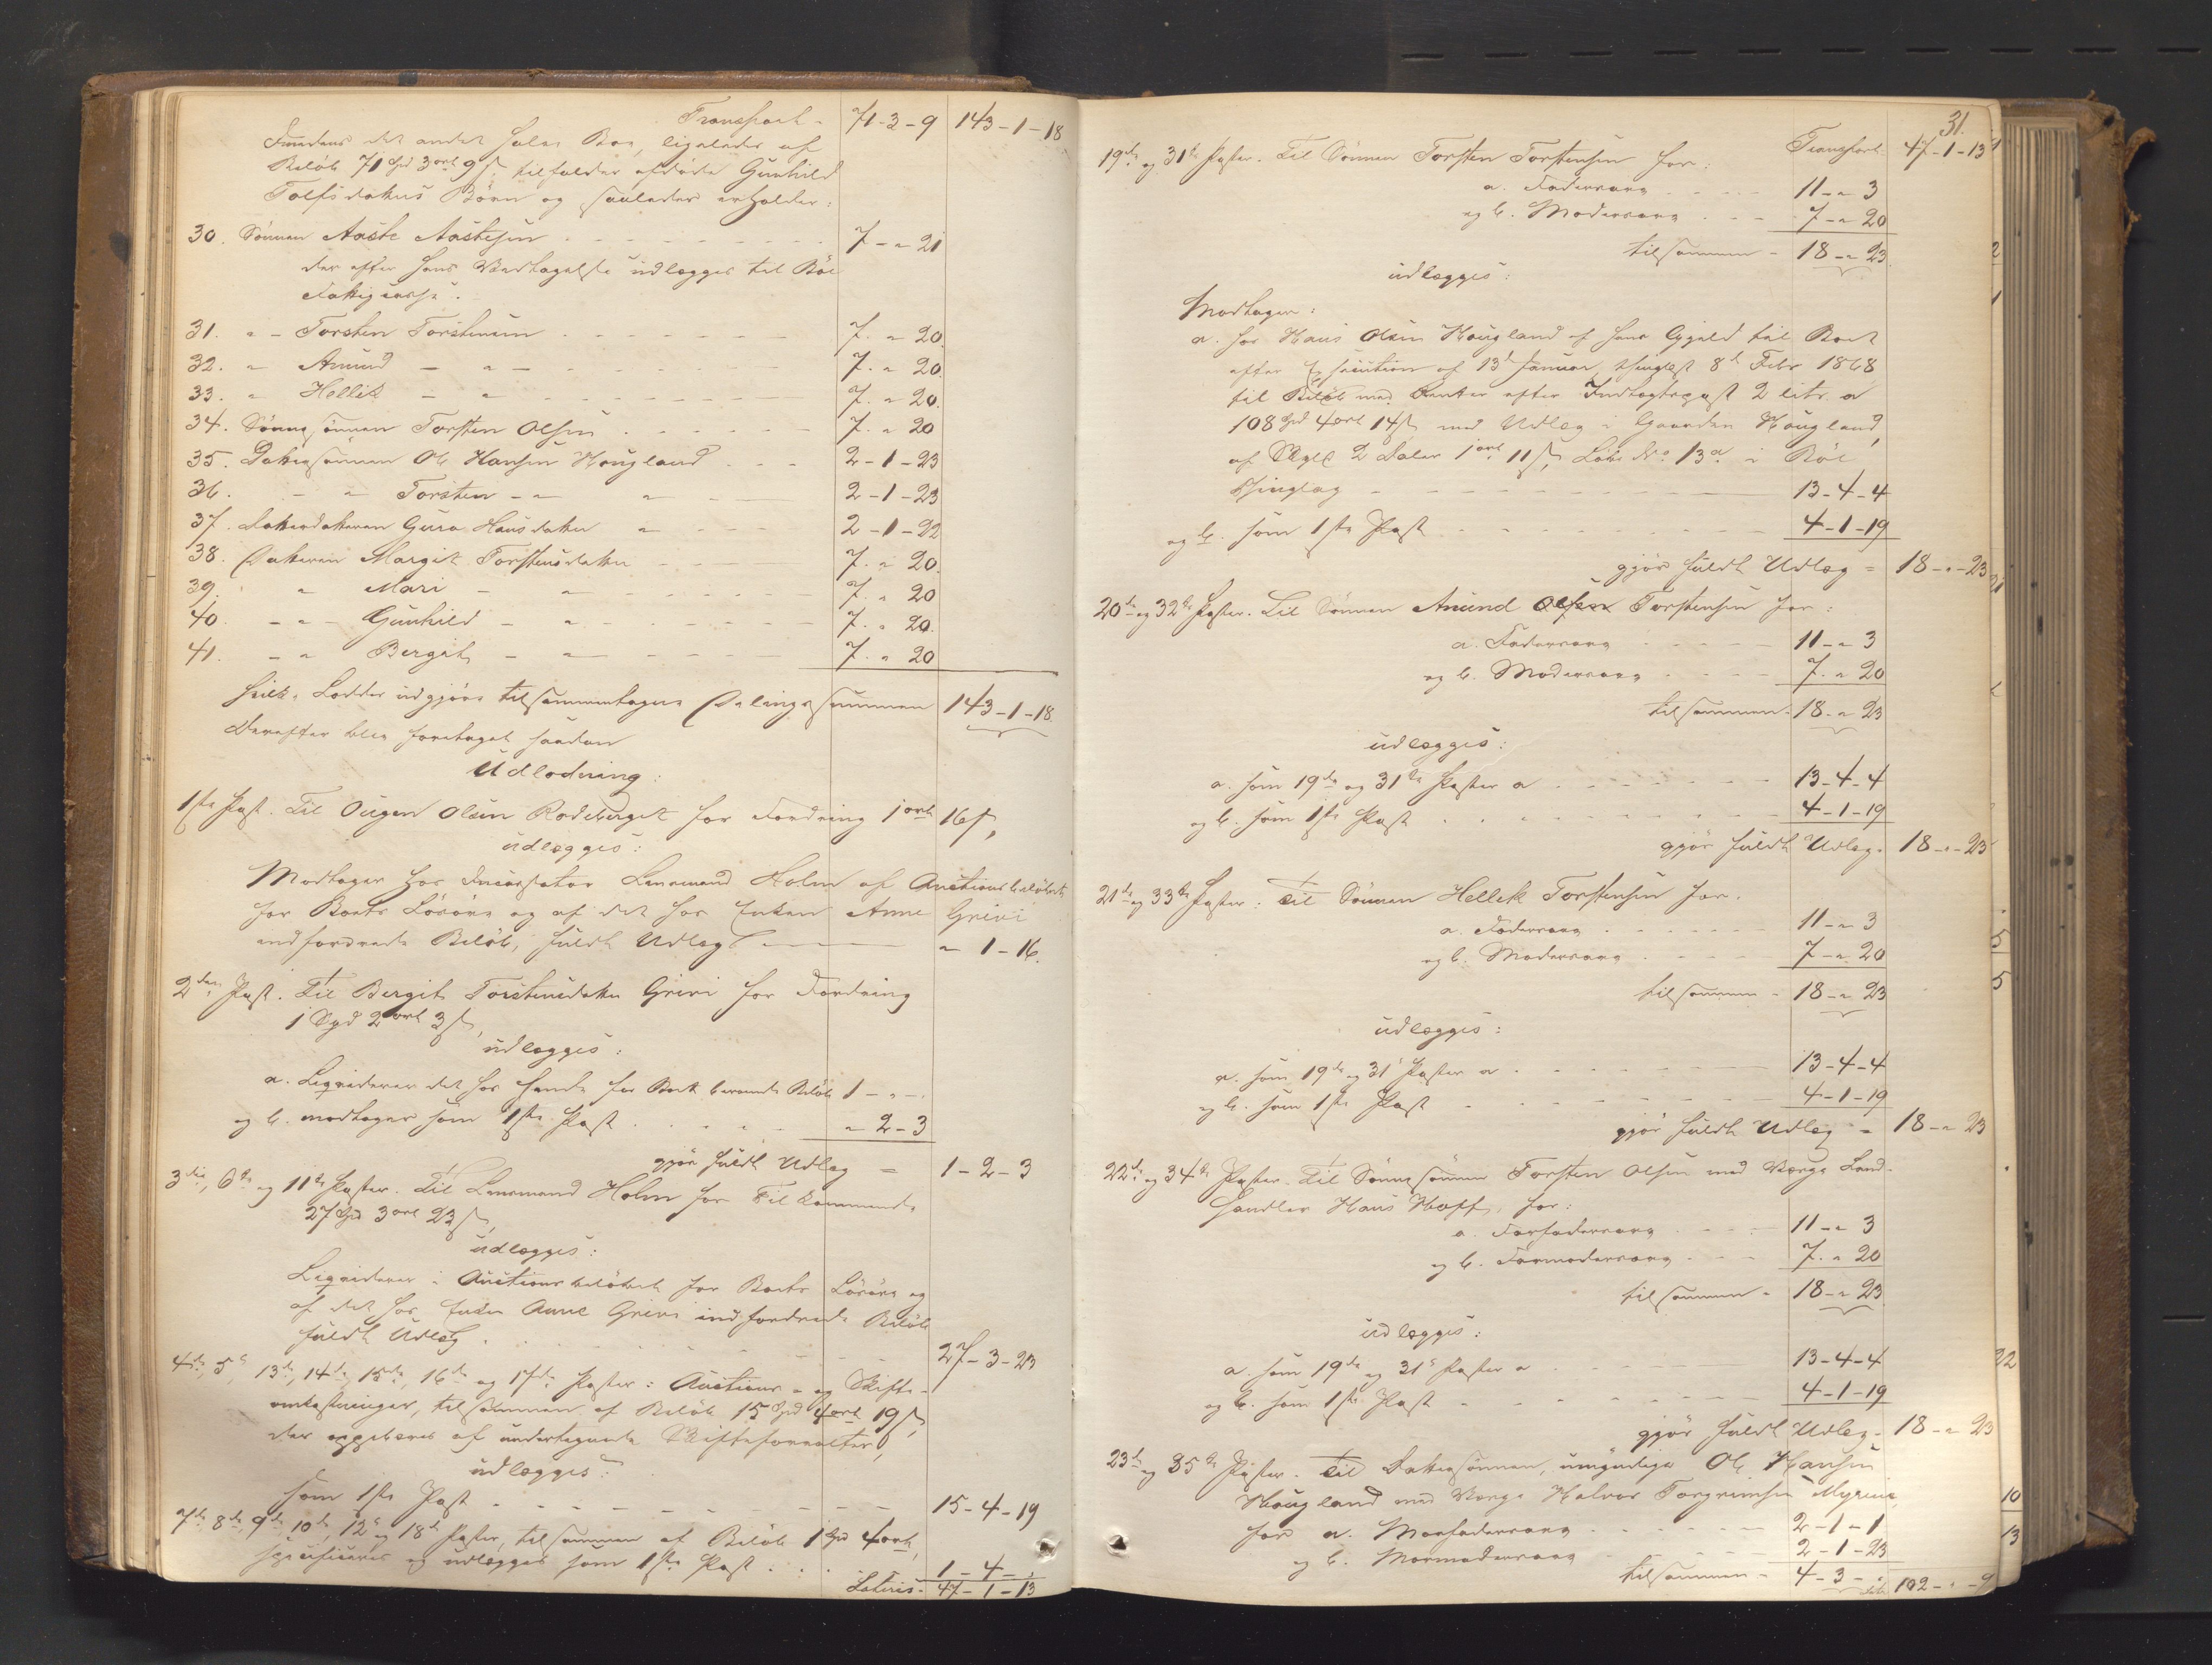 Transport - 71-3-9 143-1-18
Imedens det andet halve Boe, ligeledes af
Beløb 71 Spd 3 ort 9 s. tilfalder afdøde Gunhild
Tolfsdatters Børn og saaledes erholder:
30. Sønnen Aaste Aastesen . . . 7 - " 21
der efter hans Vedtagelse udlægges til Bøe
Fattigcasse.
31. " - Torsten Torstensen - - - 7. " 20.
32. " Anund - " - - - - 7. " 20.
33. " Hellek - " - - - - 7. " 20.
34. Sønnesønnen Torsten Olsen . . . 7. " 20
35. Dattersønnen Ole Hansen Hougland - - - 2-1-23
36. - " Torsten - " " - - 2-1-23
37. Datterdatteren Guro Hansdatter " - - - 2-1-22
38. Datteren Margit Torstensdatter - - - 7. " 20.
39. " Mari - " - - - 7. " 20
40. - " - Gunhild - " - - - 7. " 20.
41. - " Bergit - " - - - 7. " 20
hvilke Lodder udgjøre tilsammentagne Delingssummen 143-1-18.
Derefter blev foretaget saadan
Udlodning:
1ste Post. Til Ougen Olsen Rodeberget for Fordring 1 ort 16 s,
udlægges:
Modtager hos Incassator Lensmand Holm af Auctionsbeløbet
for Boets Løsøre og af det hos Enken Anne Grivi
indfordrede Beløb, fuldt Udlæg - - " 1-16.
2den Post. Til Bergit Torstensdatter Grivi for Fordring
1 Spd 2 ort 3 s,
udlægges:
a. Liqviderer det hos hende for Boet beroende Beløb 1 - " - .
og b. modtages som 1ste Post . . . . " 2-3
gjør fuldt Udlæg = 1-2-3
3die, 6te og 11te Poster. Til Lensmand Holm for Tilkommende
27 Spd 3 ort 23 s,
udlægges:
Liqviderer i Auctionsbeløbet for Boets Løsøre og
af det hos Enken Anne Grivi indfordrede Beløb
fuldt Udlæg . . . . 27-3-23
4de, 5te, 13de, 14de, 15de, 16de og 17de Poster: Auctions- og Skifte-
omkostninger, tilsammen af Beløb 15 Spd 4 ort 19 s,
der oppebæres af undertegnede Skifteforvalter,
udlægges:
som 1ste Post - - - - - 15-4-19
7de, 8de, 9de, 10de, 12te og 18de Poster, tilsammen af Beløb 1 Spd 4 ort,
specificeres og udlægges som 1ste Post . . . 1-4- .
Lateris - 47-1-13
31.
Transport - 47-1-13
19de og 31te Poster. Til Sønnen Torsten Torstensen for:
a. Fadersarv - - - - 11 - " 3
og b. Modersarv . - - 7 - " 20
tilsammen - 18 - " 23
udlægges:
Modtager:
a. hos Hans Olsen Hougland af hans Gjæld til Boet
efter Execution af 13de Januar, thinglæst 8de Febr 1868
til Beløb med Renter efter Indtægtspost 2 litr. a
108 Spd 4 ort 14 s med Udlæg i Gaarden Hougland,
af Skyld 2 Daler 1 ort 11 s, Løbe No. 13a. i Bøe
Thinglag - - - - - 13-4-4
og b. som 1ste Post - - - - 4-1-19
gjør fuldt Udlæg = 18 - " - 23
20de og 32te Poster. Til Sønnen Anund Olsen Torstensen for:
a. Fadersarv . - - - 11 - " 3
og b. Modersarv - - - 7 . " 20
tilsammen - 18 - " 23
udlægges:
a. som 19de og 31te Poster a . . - - - 13-4-4
og b. som 1ste Post . . . - - 4-1-19
gjør fuldt Udlæg. 18 - " - 23
21de og 33te Poster: Til Sønnen Hellek Torstensen for.
a. Fadersarv . . . . 11 - " 3
og b. Modersarv . - - 7 - " 20
tilsammen - 18 - " 23
udlægges:
a. som 19de og 31te Poster a . . . 13-4-4
og b. som 1ste Post . . . 4-1-19
gjør fuldt Udlæg = 18 - " 23
22de og 34te Poster. Til Sønnesønnen Torsten Olsen med Værge Land-
handler Hans Hoff, for:
a. Farfadersarv . - - 11 - " 3
og b. Farmodersarv . - - 7. " 20
tilsammen - 18 - " 23
udlægges:
a. som 19de og 31te Poster a - - - 13-4-4
og b. som 1ste Post - - - - 4-1-19
gjør fuldt Udlæg - 18 - " 23
23de og 35te Poster. Til Dattersønnen, umyndige Ole Hansen
Hougland med Værge Halvor Torgrimsen Myrene,
for a. Morfadersarv . . . . 2-1-1
og b. Mormodersarv - - - 2-1-23
tilsammen - 4-3- .
Lats 102 - " - 9